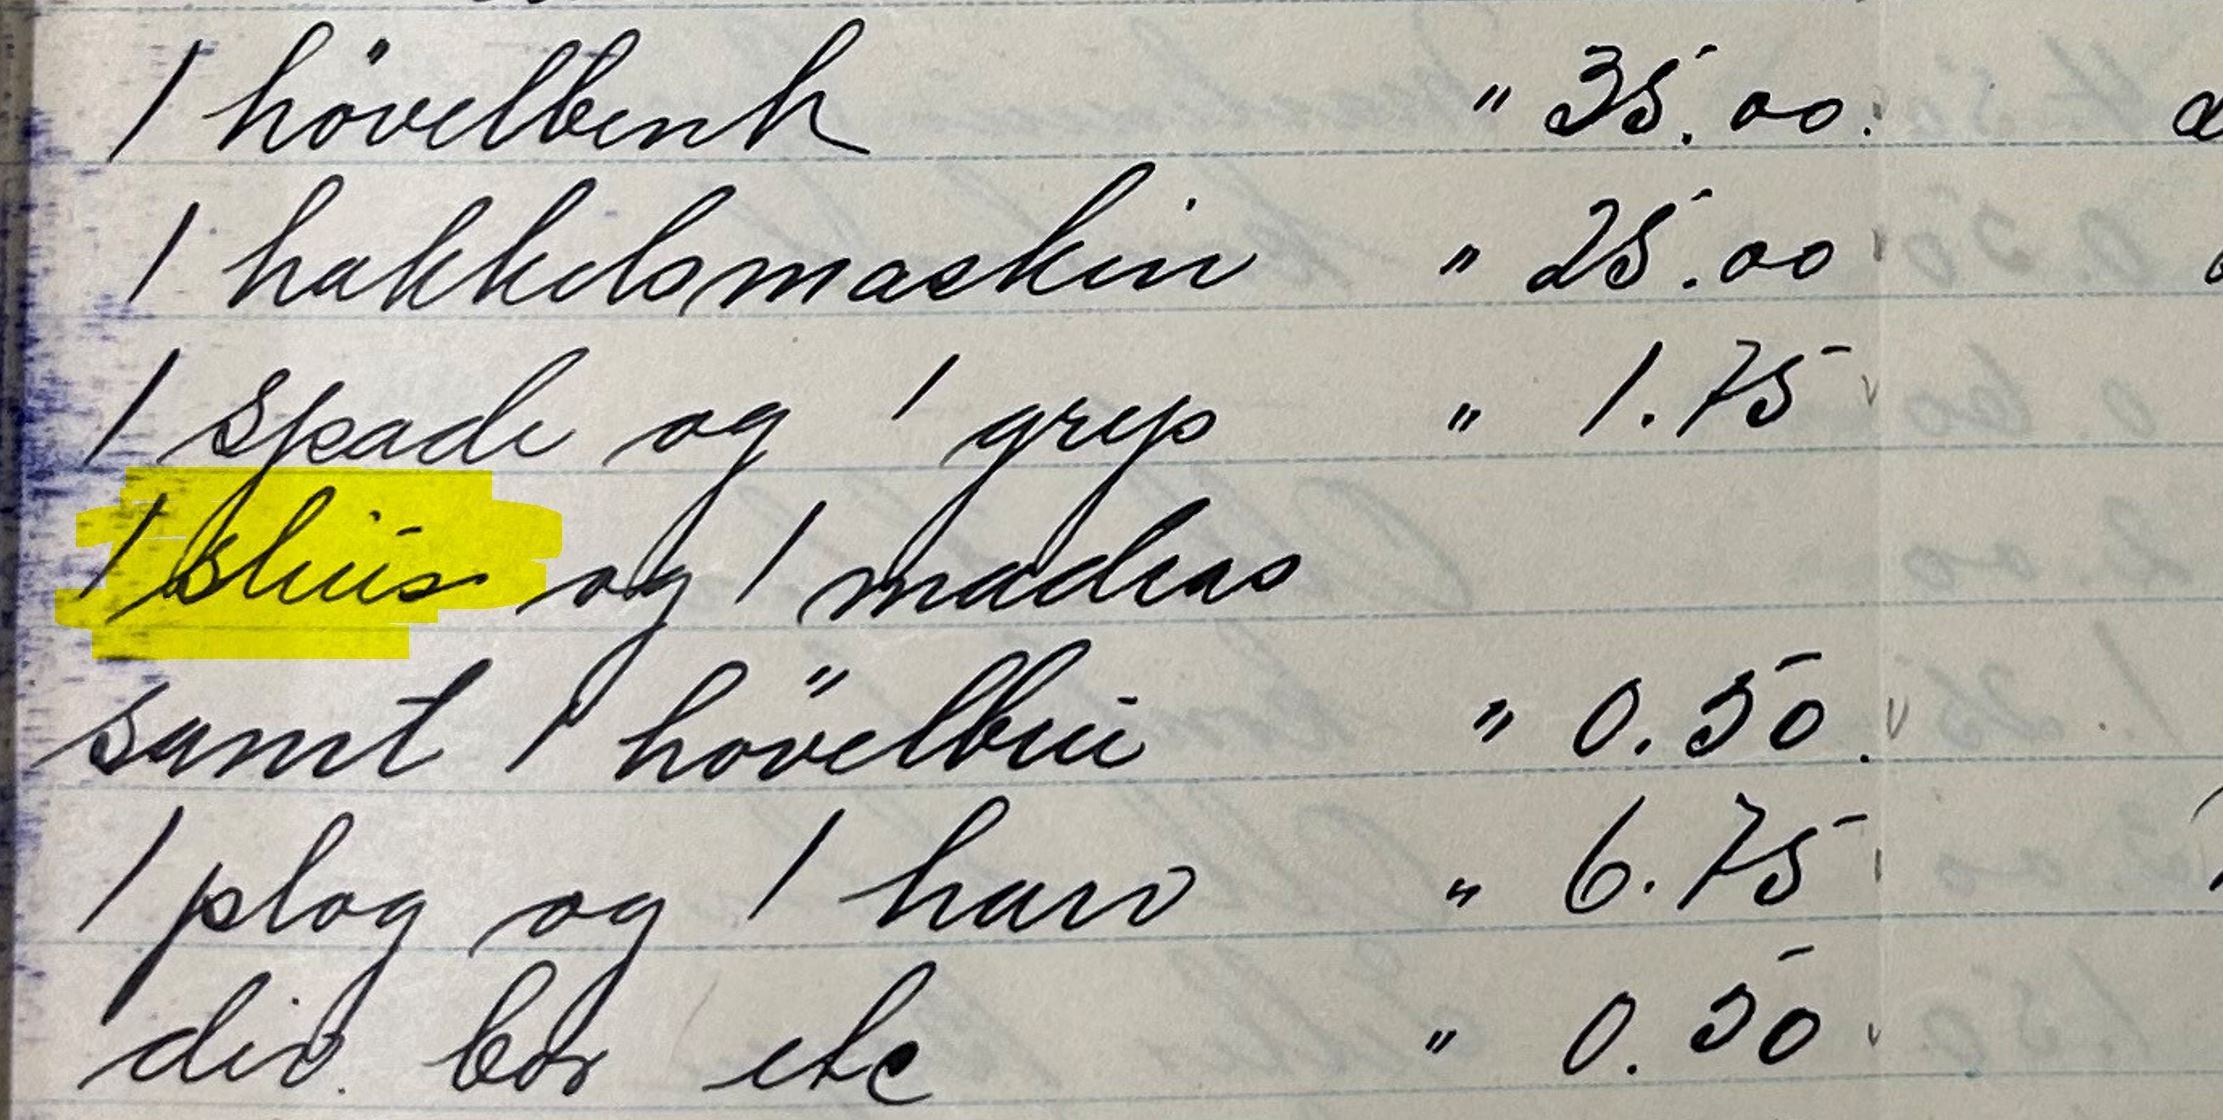 1 hövelbenk " 35.00.
1 hakkelsmaskin " 25.00
1 spade og 1 grep " 1.75
1 og 1 madras
samt 1 " 0.50.
1 plog og 1 harv " 6.75
div. bor etc " 0.50